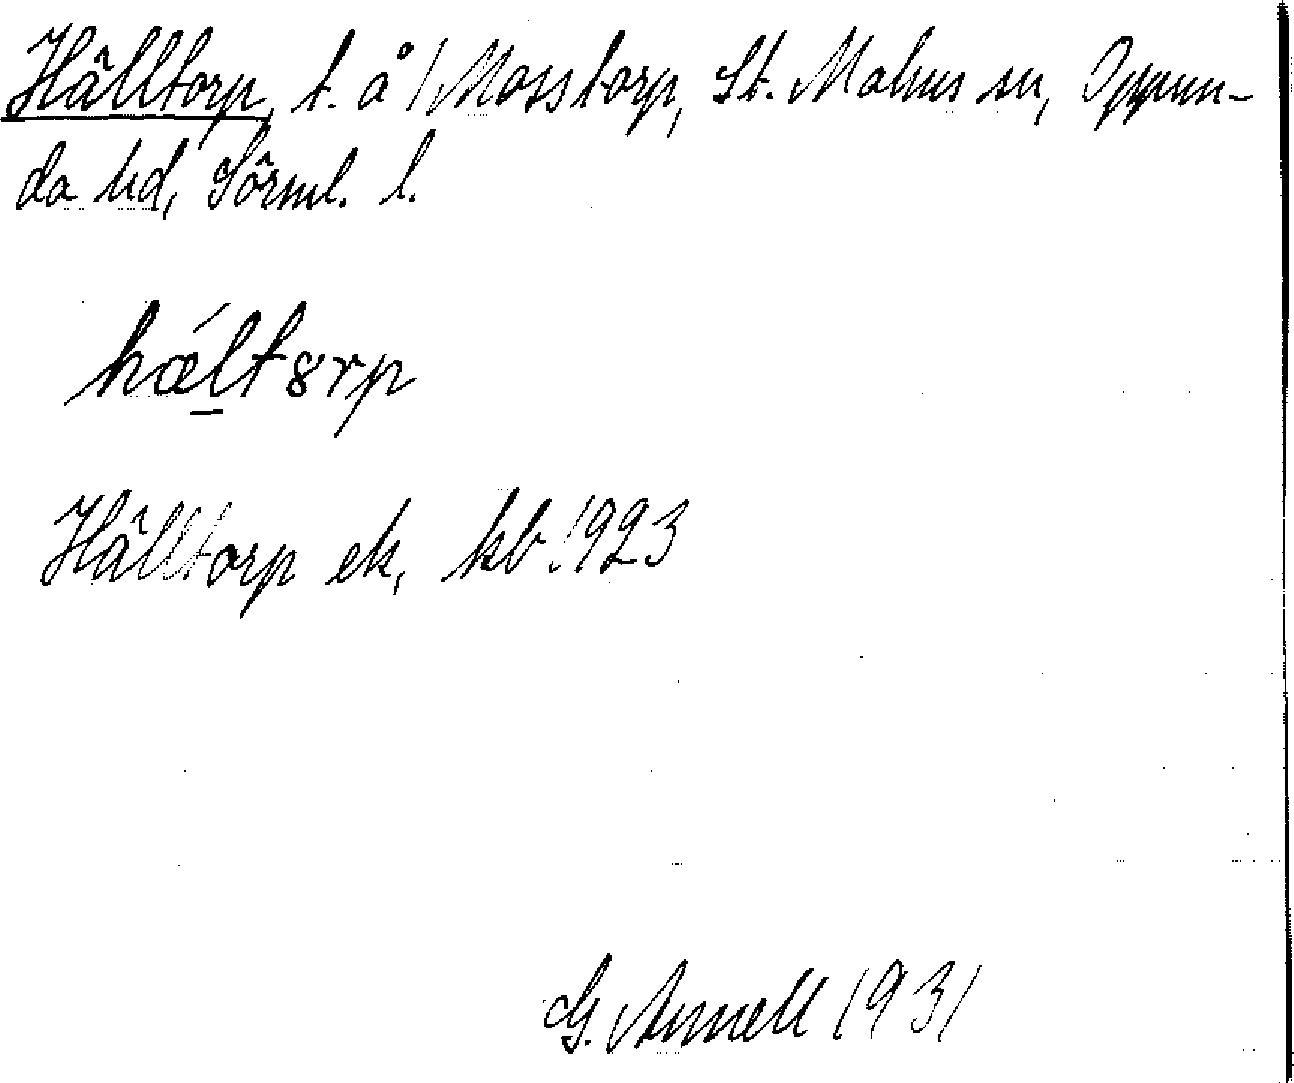 Hälltorp, t. å /Mosstorp, St. Malms sn, Oppun-
da hd, Sörml. l.
hǽltɞrp
Hälltorp ek, kb. 1923
G. Annell 1931